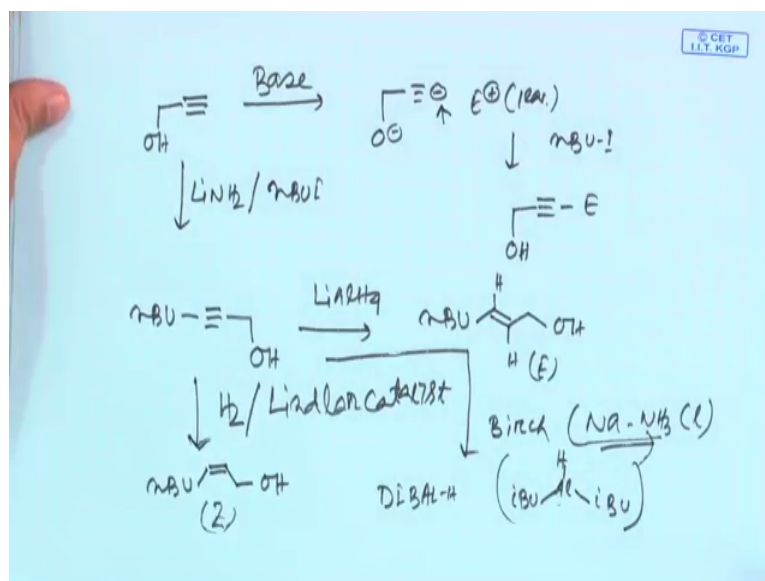 © CET
I.I.T. KGP
Base
OH
O⊖
≡⊖
E⊕
nBU-I
LiNH2/nBUI
≡-E
OH
nBU-≡
OH
LiAlH4
nBU
H
H
OH
(E)
H2/Lindlar catalyst
Birch (Na-NH3(l)
nBU
OH
(Z)
DiBAl-H
H
(iBU Al iBU)